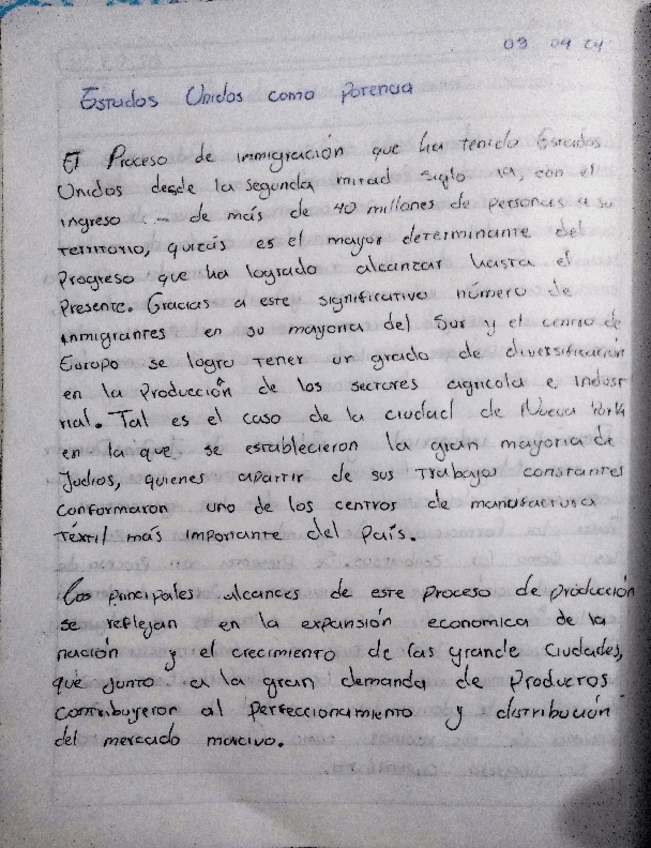 09 04 24
Estados Unidos como potencia
El Proceso de inmigración que ha tenido Estados
Unidos desde la segunda mitad siglo 19, con el
ingreso de más de 40 millones de personas a su
territorio, quizás es el mayor determinante del
Progreso que ha logrado alcanzar hasta el
Presente. Gracias a este significativo número de
inmigrantes en su mayoria del Sur y el centro de
Europa se logro tener un grado de diversificación
en la Producción de los sectores agricola e indust
rial. Tal es el caso de la ciudad de Nueva York
en la que se establecieron la gran mayoria de
Judios, quienes apartir de sus trabajos constantes
conformaron uno de los centros de manufactura
téxtil más importante del País.
Los principales alcances de este proceso de producción
se reflejan en la expansión economica de la
nación y el crecimiento de las grande ciudades,
que junto a la gran demanda de Productos
contribuyeron al perfeccionamiento y distribución
del mercado macivo.